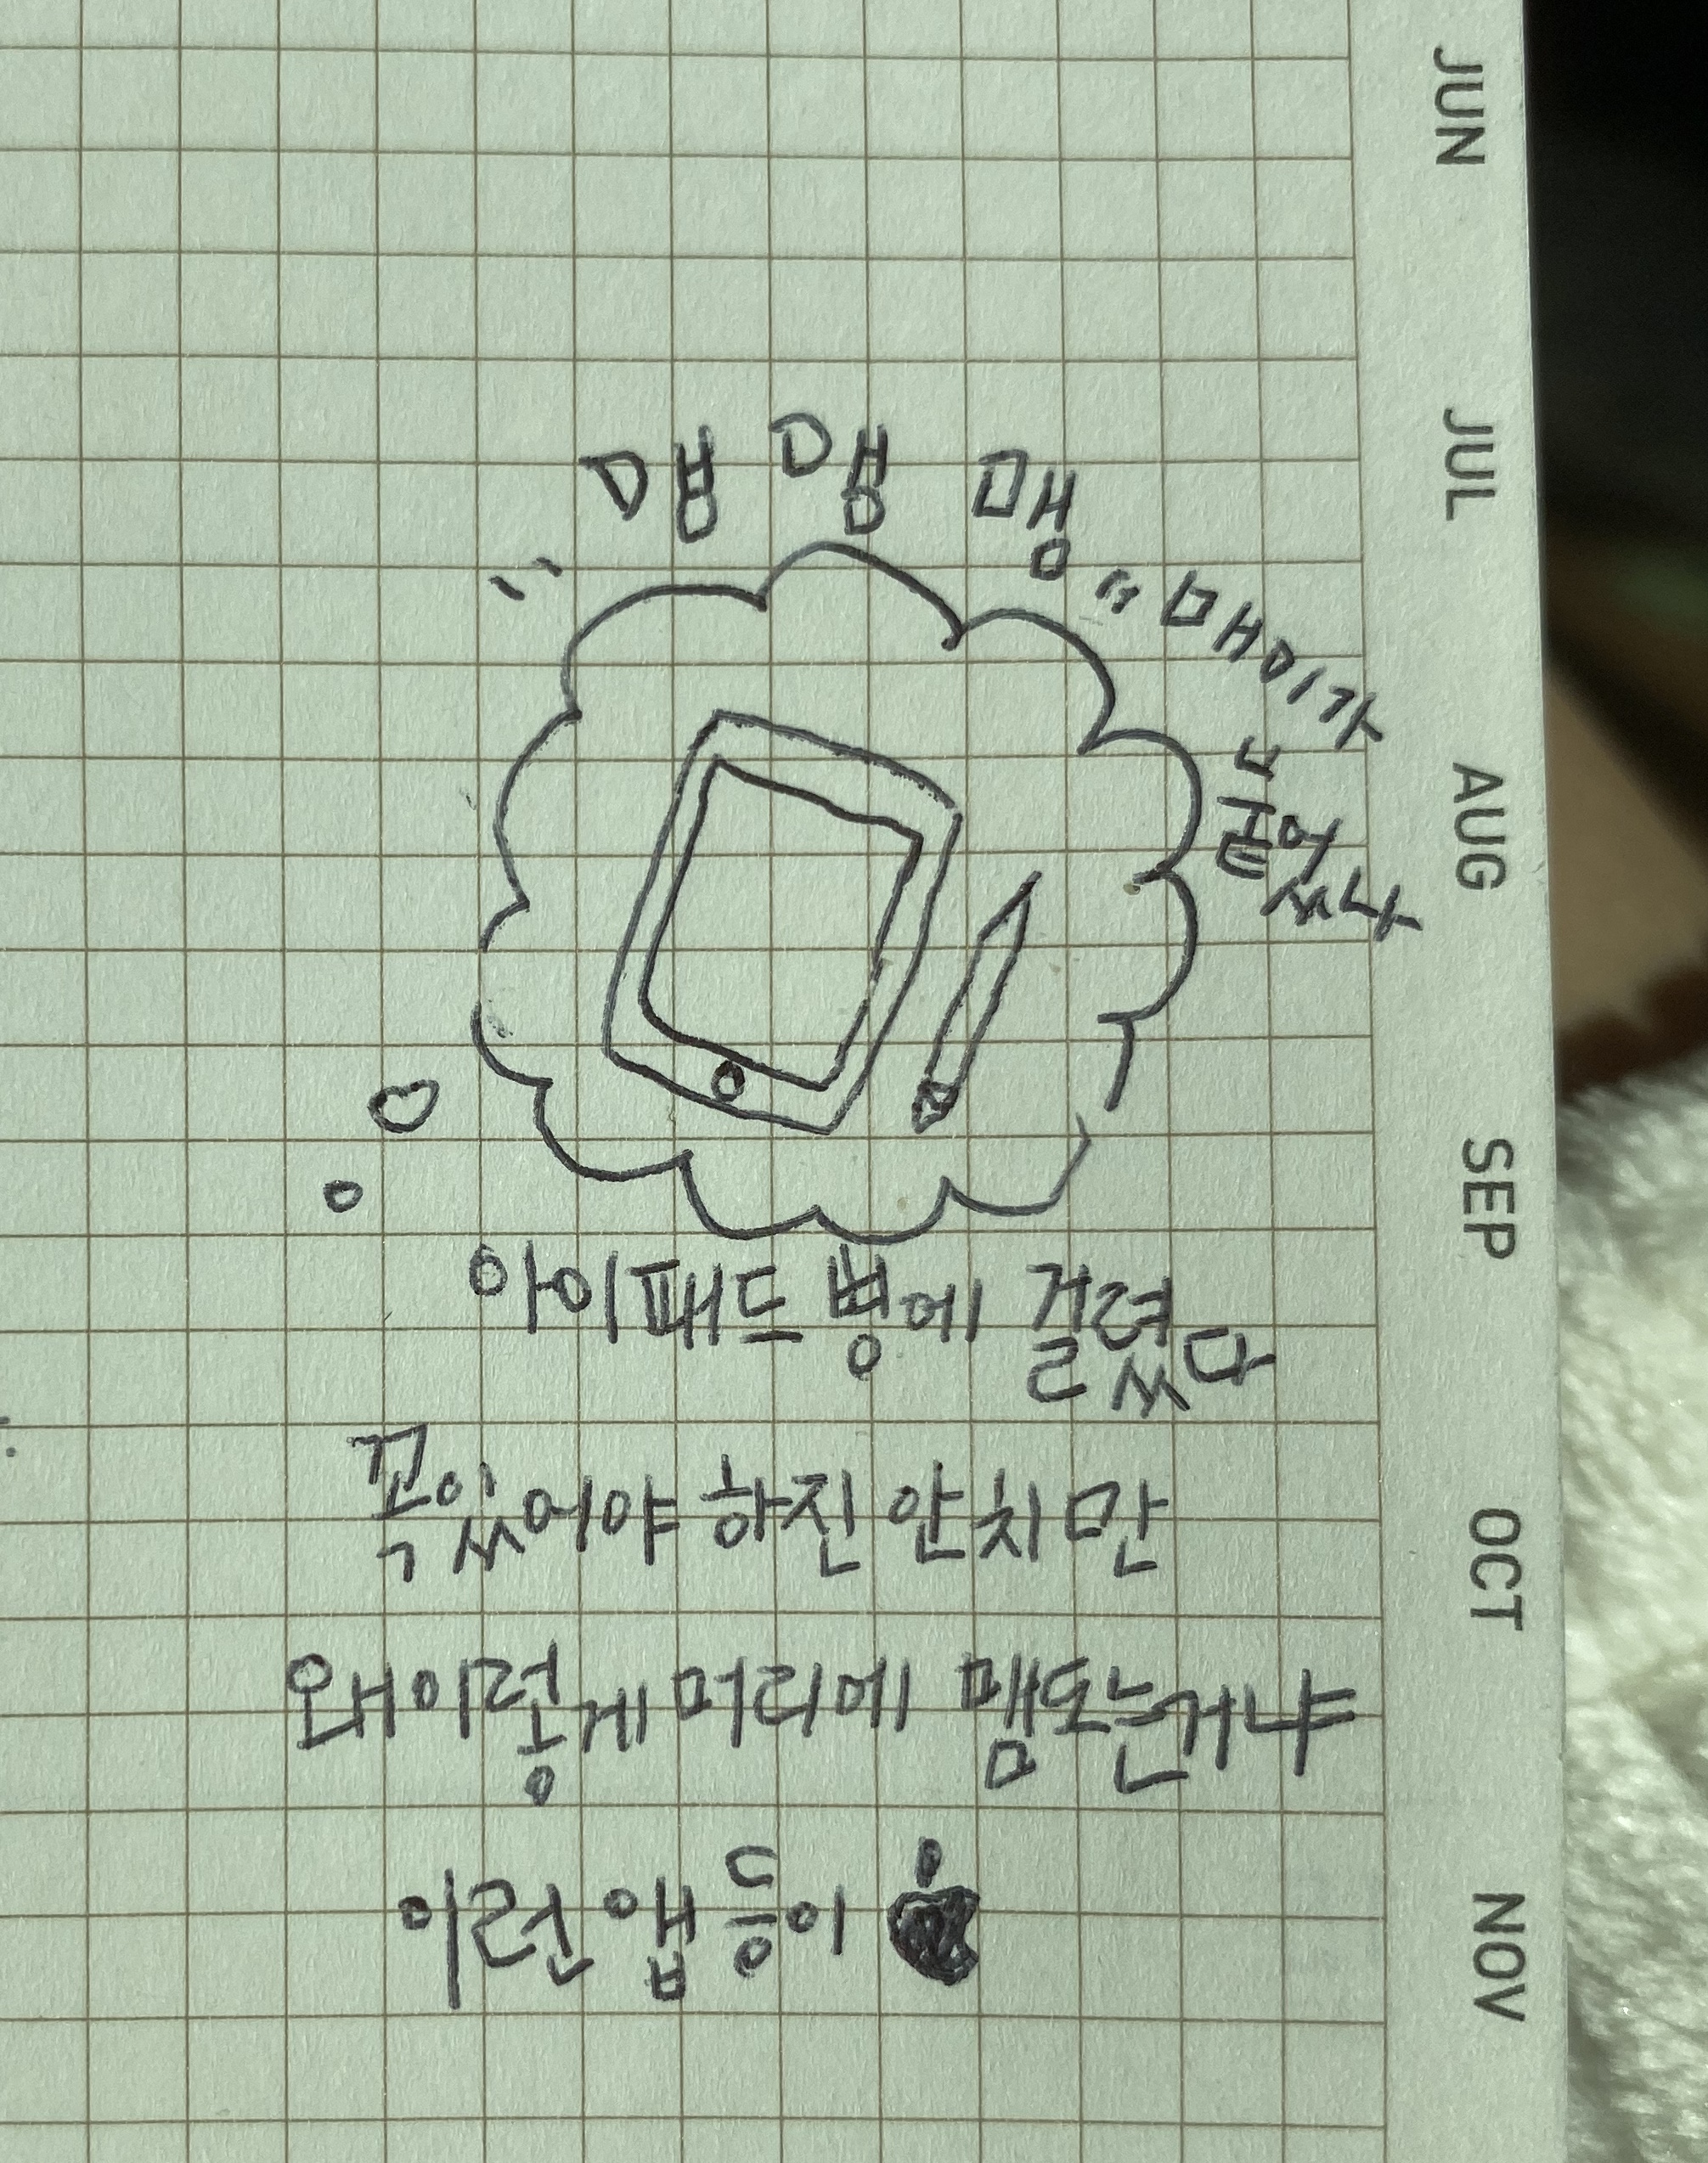 맴 맴 맴 매미가
붙었나
아이패드 병에 걸렸다
꼭 있어야 하진 안치만
왜 이렇게 머리에 맴도는거냐
이런 앱등이
JUN
JUL
AUG
SEP
OCT
NOV